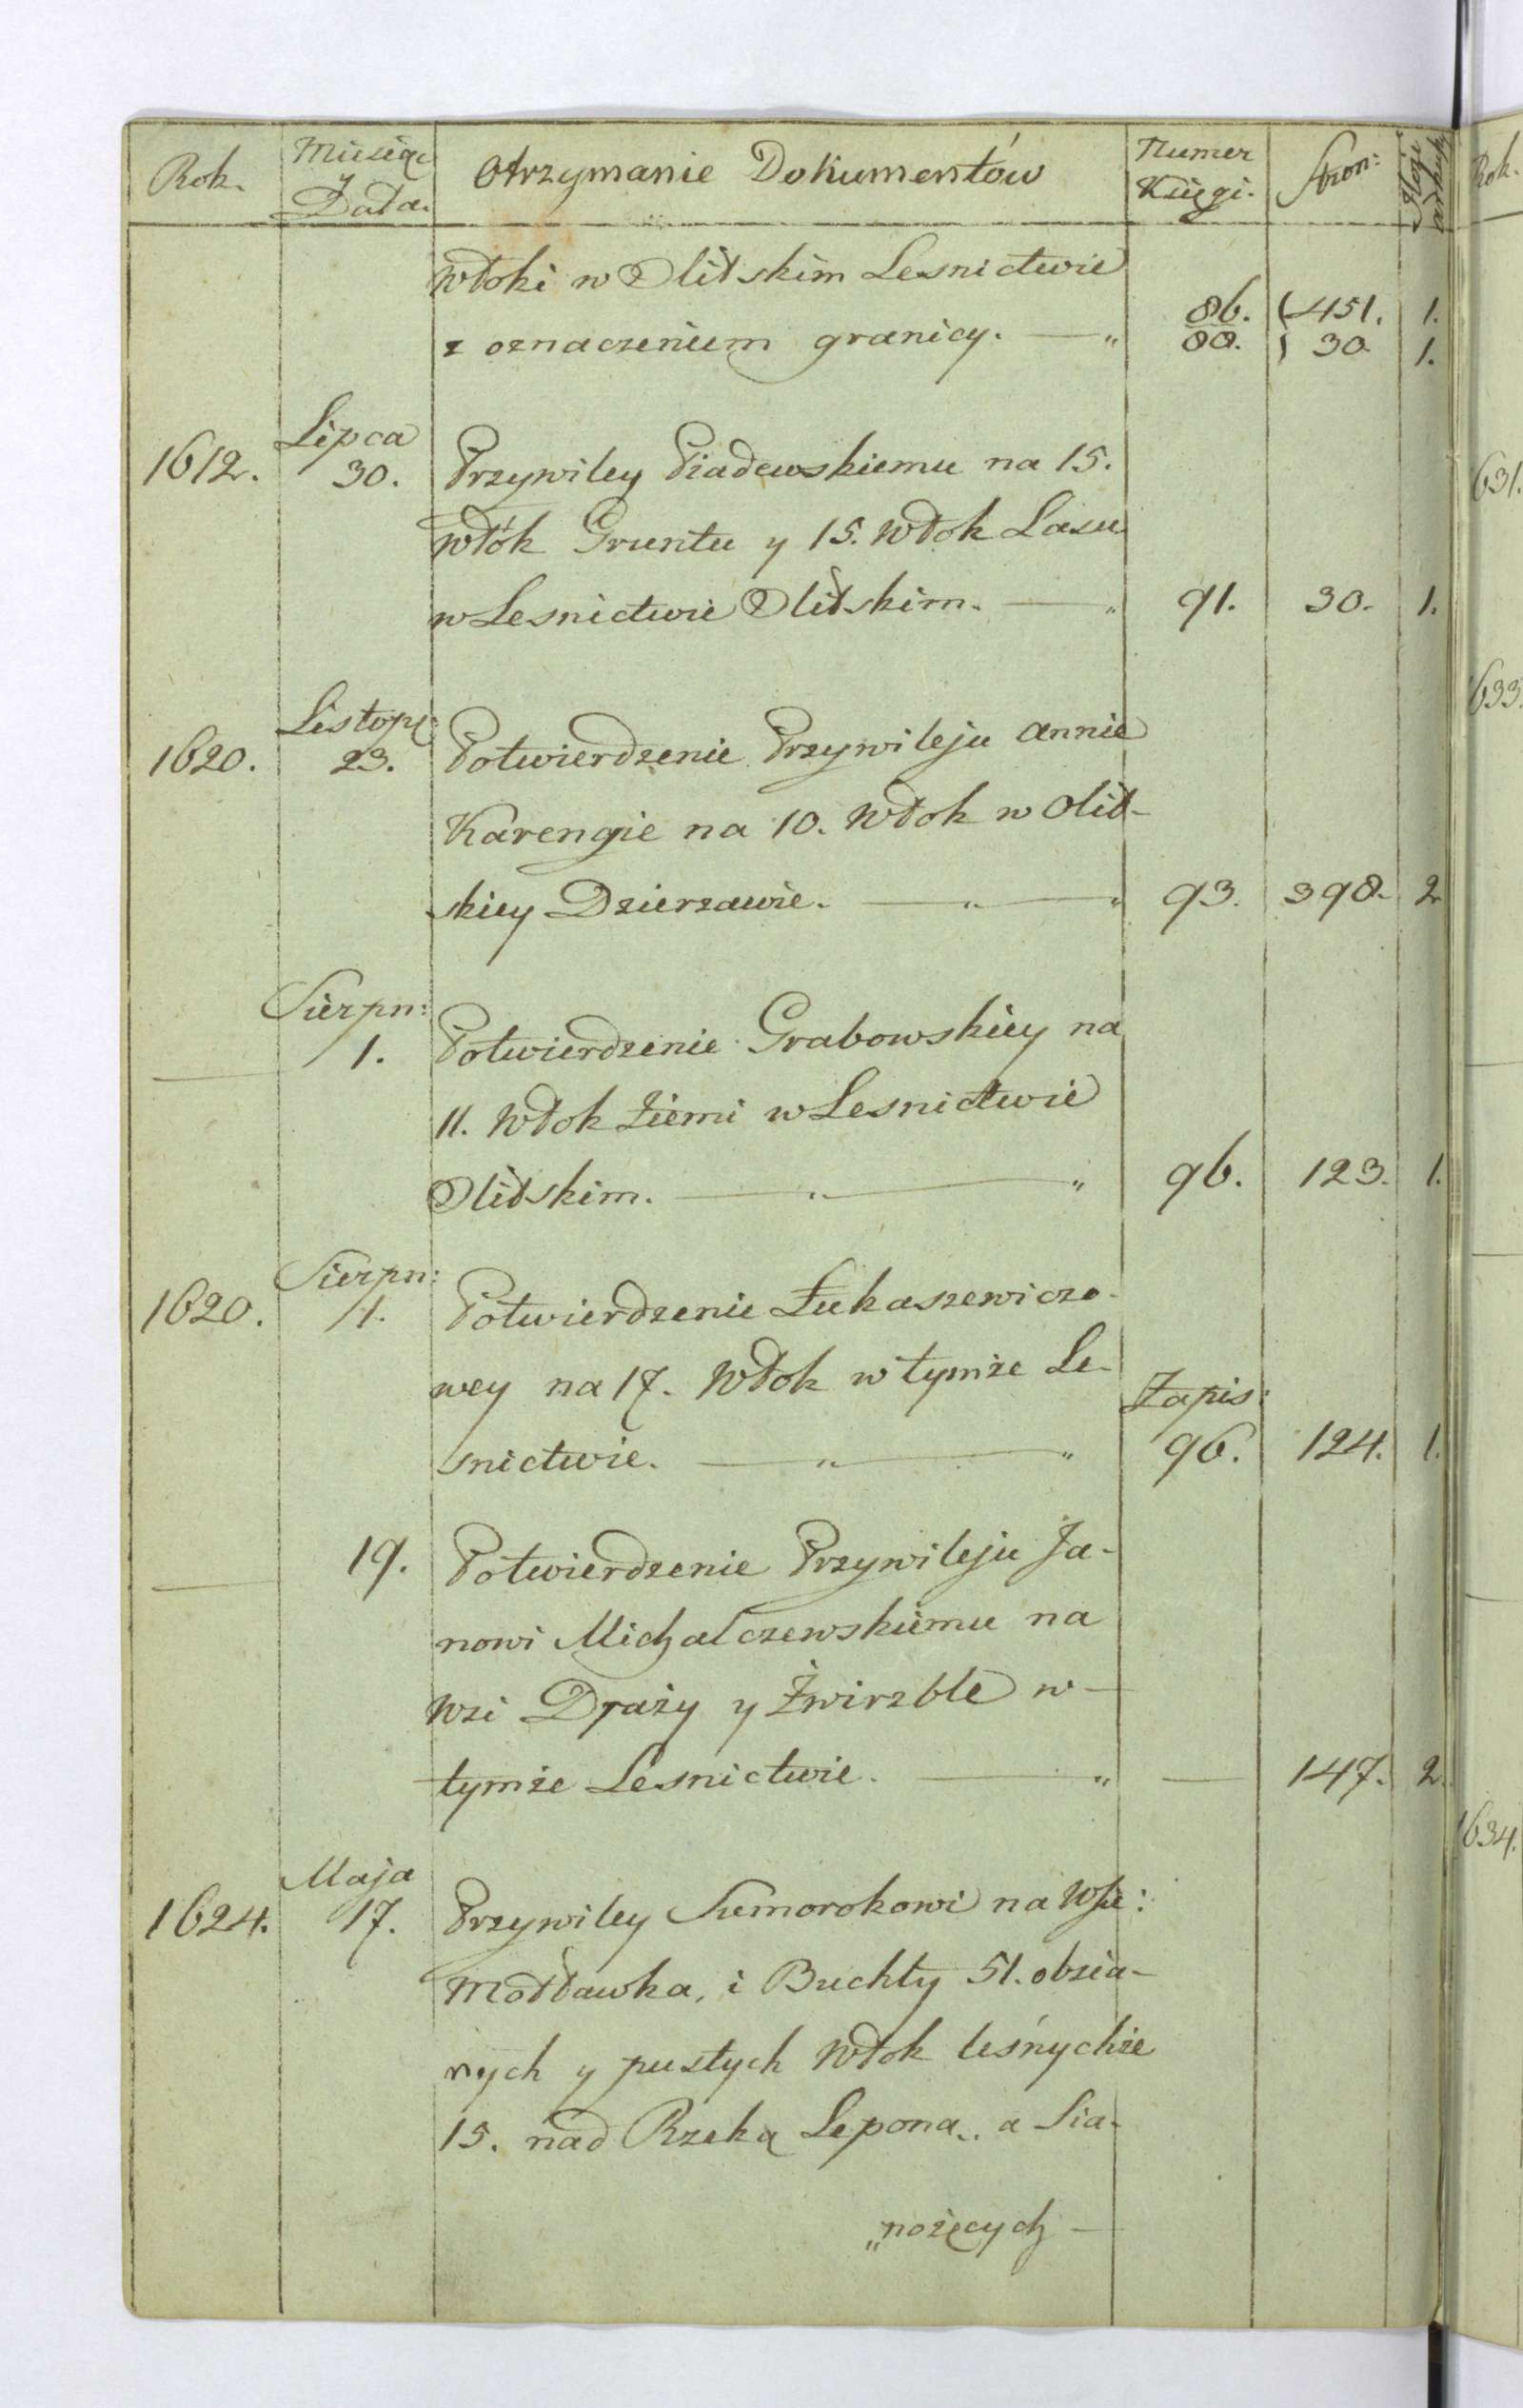 Rok. Miesiąc y Data. Otrzymanie Dokumentów Numer Księgi. Stron:
Włoki w Olitskim Lesnictwie
86. 451. 1.
z oznaczeniem granicy. — „ 88. 30. 1.
Lipca
1612. 30. Przywiley Piadewskiemu na 15.
włók Gruntu y 15. Włok Lasu
w Lesnictwie Olitskim. — „ 91. 30. 1.
Listop:
1620. 23. Potwierdzenie Przywileju Annie
Karengie na 10. Włok w Olit-
skiey Dzierzawie. — „ — „ 93. 398. 2
Sierpn:
— 1. Potwierdzenie Grabowskiey na
11. Włok Ziemi w Lesnictwie
Olitskim. — „ — „ 96. 123. 1.
Sierpn:
1620. 1. Potwierdzenie Łukaszewiczo-
wey na 17. Włok w tymże Le-
Zapis:
snictwie. — „ — „ 96. 124. 1.
— 19. Potwierdzenie Przywileju Ja-
nowi Michalczewskiemu na
Wsi Draży y Żwirzble w —
tymże Lesnictwie. — „ — 147. 2.
Maja
1624. 17. Przywiley Sumorokowi na Wsie:
Mołławka, i Buchty 51. obsia-
nych y pustych Włok leśnychże
15. nad Rzeką Lepona.. a Sia-
„nożęcych —
Rok.
631.
633.
1634.